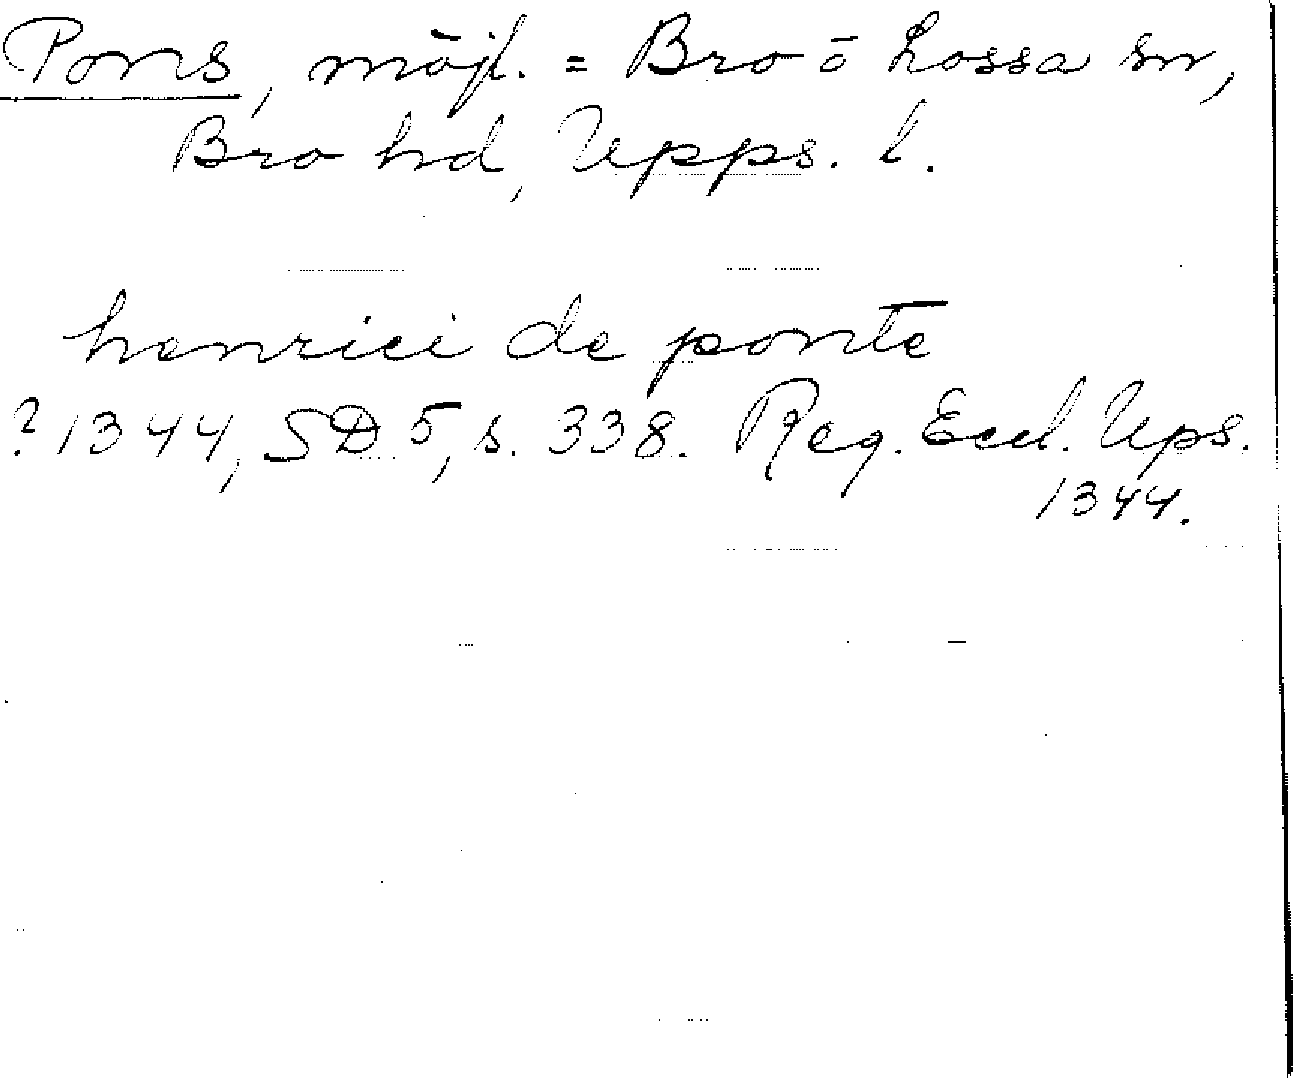 Pons, möjl. = Bro o Lossa sn,
Bro hd, Upps. l.
henrici de ponte
? 1344, SD 5, s. 338. Reg. Eccl. Ups.
1344.